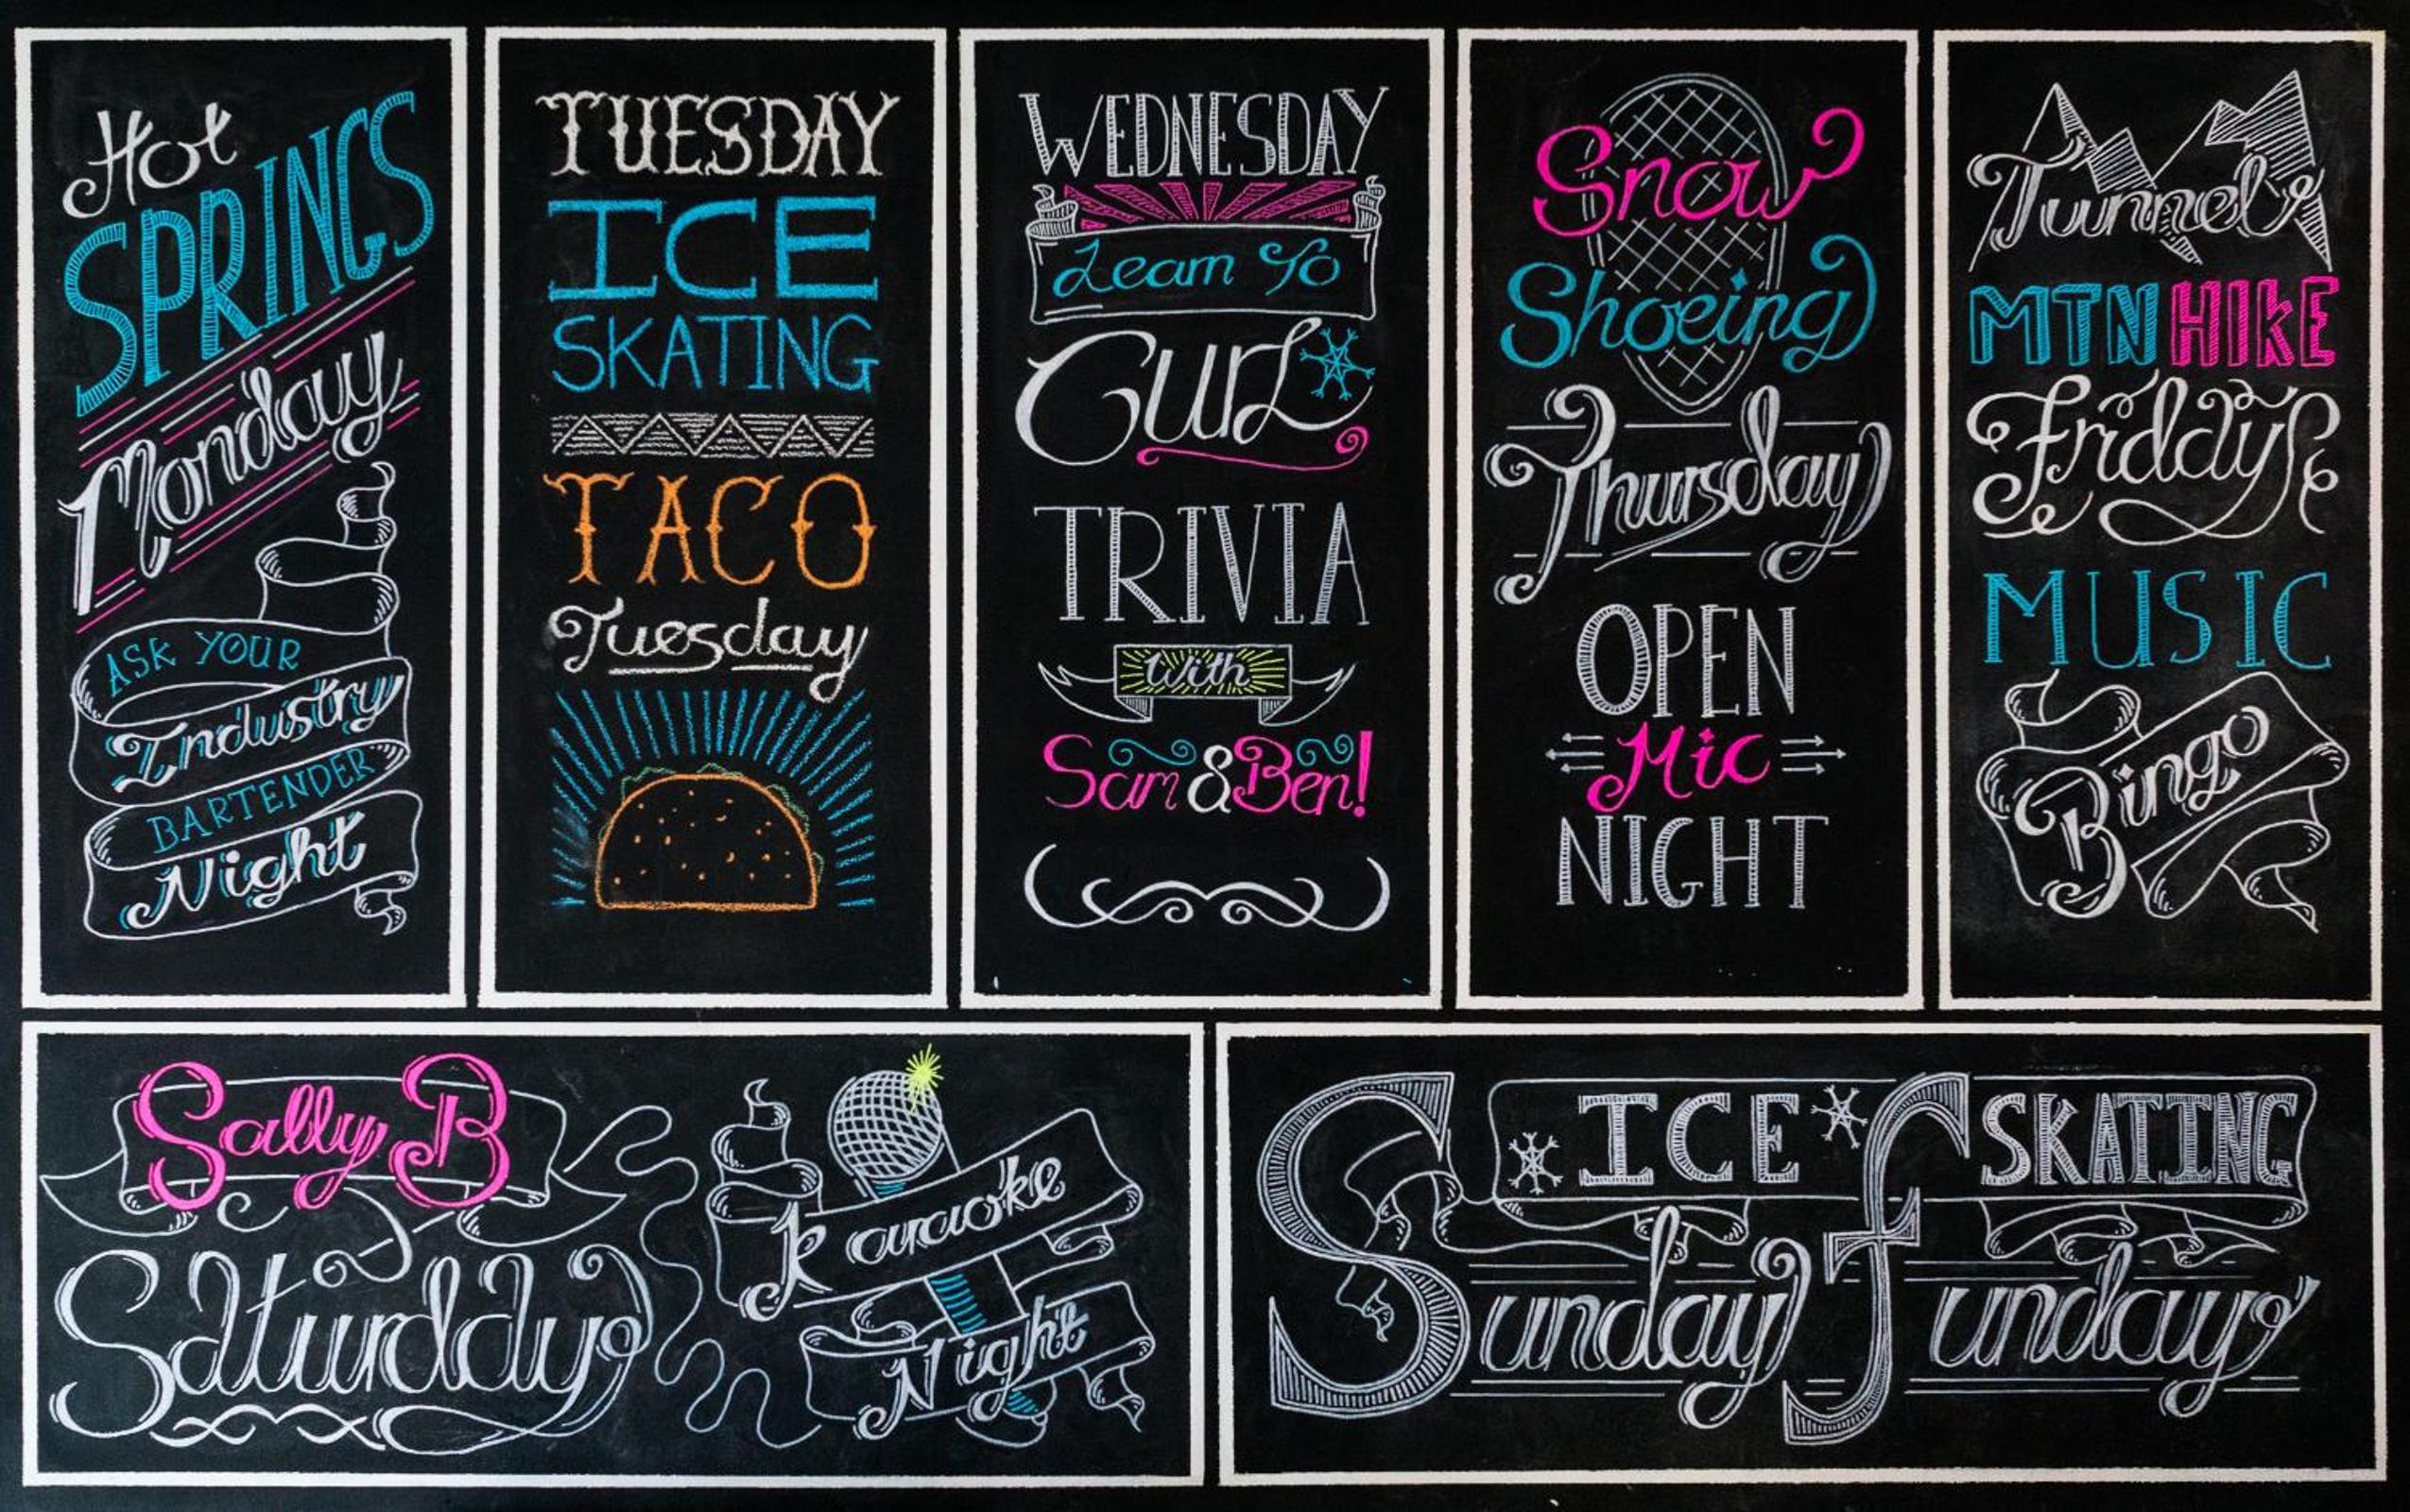 Hot
SPRINGS
Monday
ASK YOUR
Industry
BARTENDER
Night
TUESDAY
ICE
SKATING
TACO
Tuesday
WEDNESDAY
Learn To
Curl
TRIVIA
With
Sam & Ben!
Snow
Shoeing
Thursday
OPEN
Mic
NIGHT
Tunnel
MTN HIKE
Friday
MUSIC
Bingo
Sally B
Saturday
Karaoke
Night
ICE SKATING
Sunday Funday